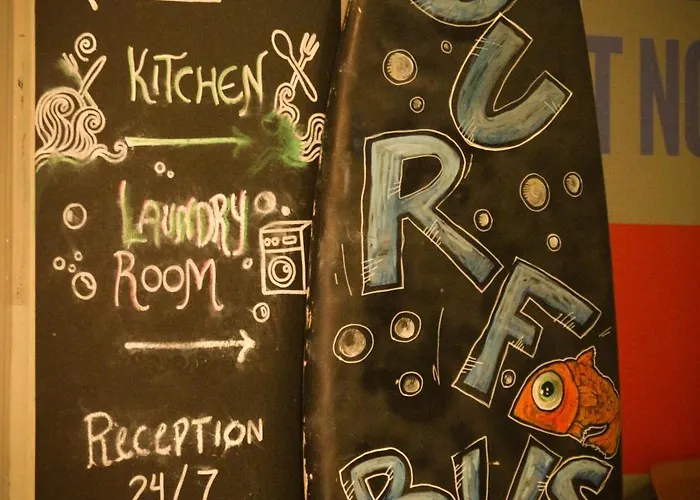 KITCHEN
LAUNDRY
ROOM
RECEPTION
24/7
SURF
BUS
T NO